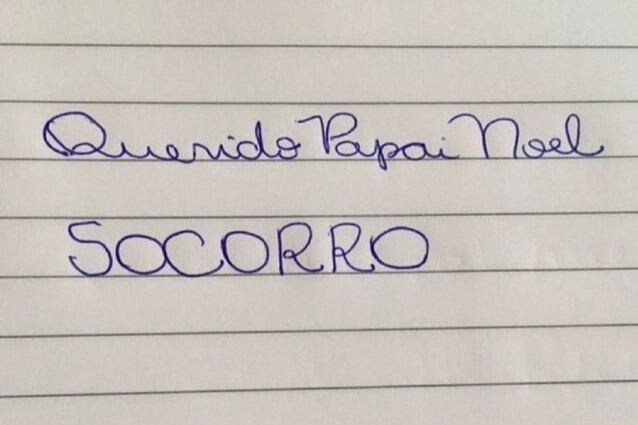 Querido Papai Noel
SOCORRO